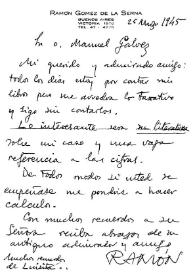 RAMÓN GOMEZ DE LA SERNA
BUENOS AIRES
VICTORIA 1970
TEL. 47
25 1945
Sr. D. Manuel Galvez
Mi querido y admirado amigo:
todos los dias estoy por contar mis
libros pero me arredra lo
y sigo sin contarlos.
Lo interesante sería su literatura
sobre mi caso y una vaga
referencia a las cifras.
De todos modos si usted se
empeñase me pondría a hacer
calculo.
Con muchos recuerdos a su
Señora reciba abrazos de su
antiguo admirador y amigo
RAMÓN
Muchos recuerdos
de Luisita.